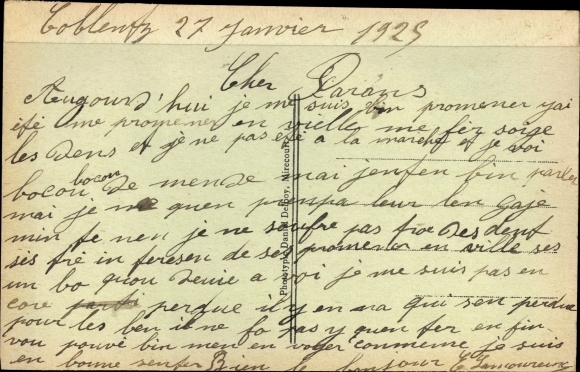 Coblentz 27 janvier 1925
Cher Parans
Augourd'hui je me suis bin promener jai
été me promener en vielle me fér soise
les dens et je ne pas été a la marche et je voi
bocou bocou de mende mai jenten bin parler
mai je ne quen prenpa leur len gaje
min te nen je ne soufre pas tro des dent
sis tré in teresen de se promener en ville ses
un bo quou denie a voi je me suis pas en
core perdue il y en na qui sen perdue
pour les ben il ne fo pas y quen ter en fin
vou pouvé bin men en voyer conmeme je suis
en bonne senter Bien le bonjour E. Lamoureux
Phototypie Daniel Delboy, Mirecourt